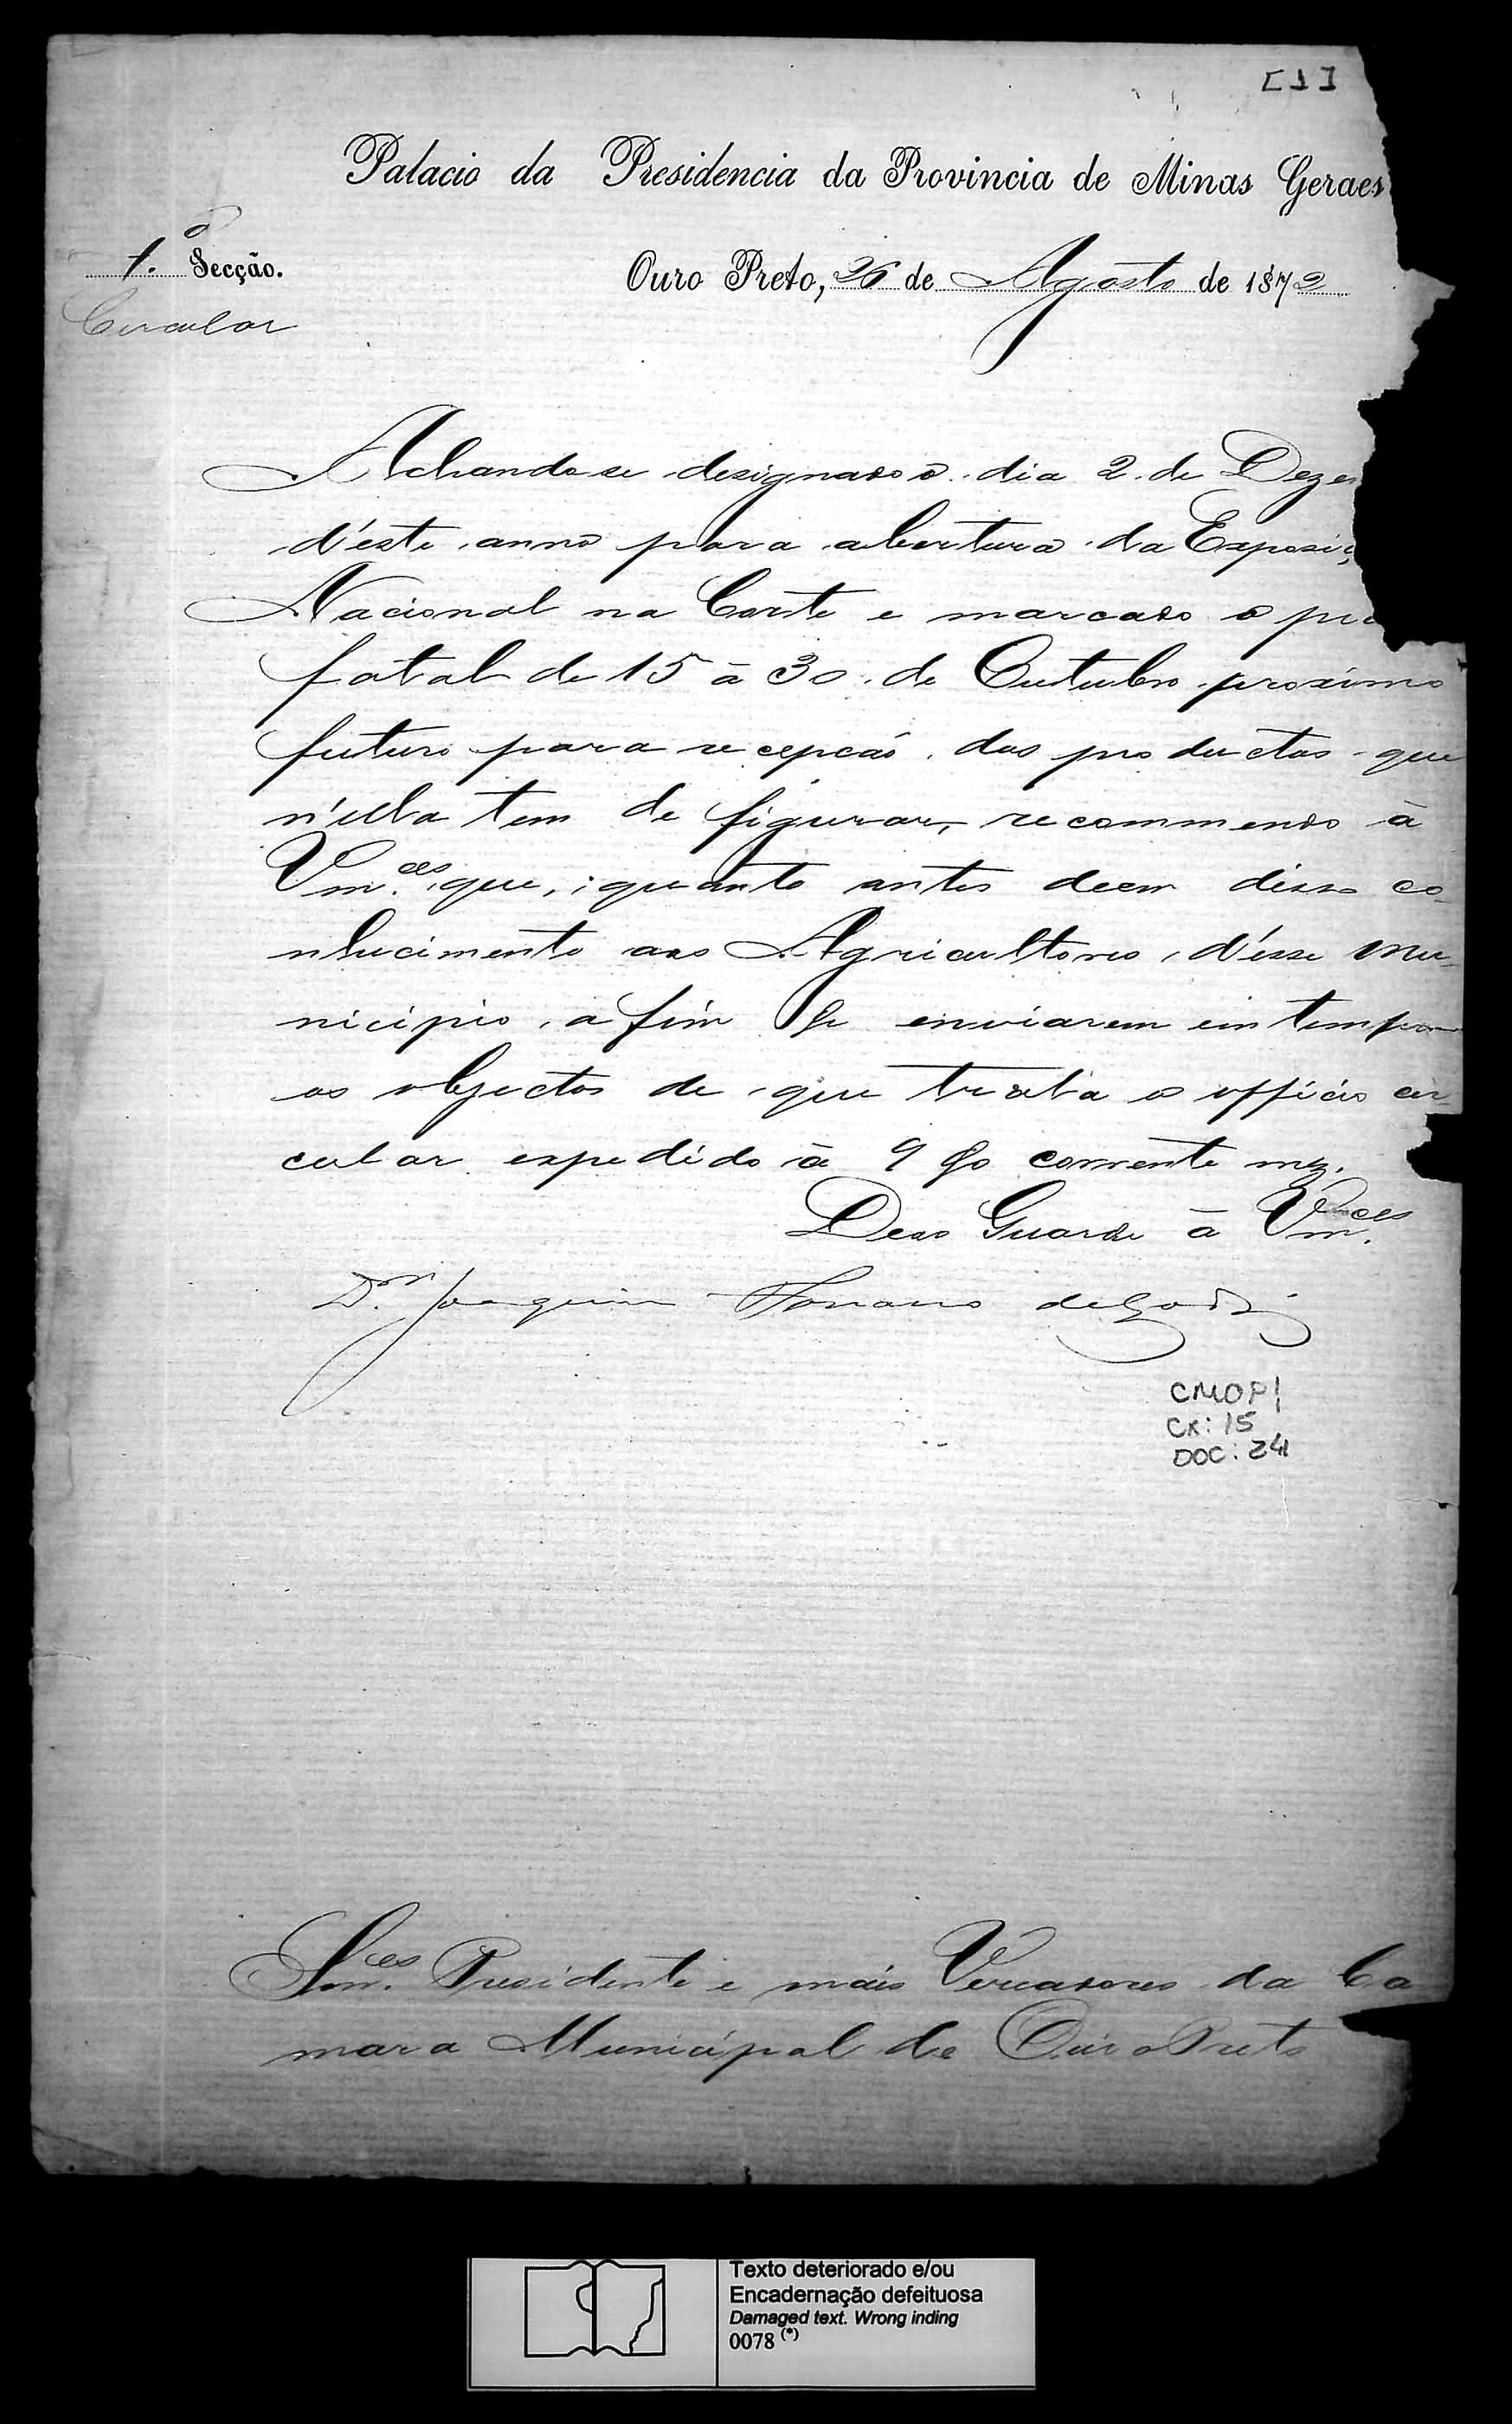 [1]
Palacio da Presidencia da Provincia de Minas Geraes
1.ª Secção.
Ouro Preto, 26 de Agosto de 1872
Circular
Achando se designado o dia 2 de Deze
d'este anno para abertura da Exposiç
Nacional na Corte e marcado o pra
fatal de 15 à 30 de Outubro proximo
futuro para recepção dos productos que
n'ella tem de figurar, recommendo à
Vm.ces que, quanto antes deem disso co-
nhecimento aos Agricultores d'esse mu-
nicipio, a fim de enviarem em tempo
os objectos de que trata o officio cir-
cular expedido à 9 do corrente mez.
Deos Guarde à Vm.ces
D.or Joaquim Floriano de Godoy
CMOP|
CX: 15
DOC: 24
Snr.es Presidente e mais Vereadores da Ca
mara Municipal de Ouro Preto
Texto deteriorado e/ou
Encadernação defeituosa
Damaged text. Wrong inding
0078 (*)